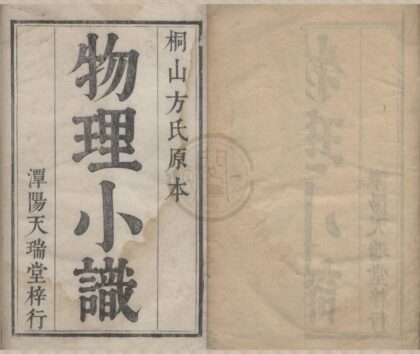 桐山方氏原本
物理小識
潭陽天瑞堂梓行